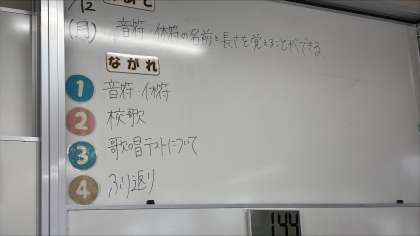 めあて
(月) 音符・休符の名前と長さを覚えることができる
ながれ
1 音符・休符
2 校歌
3 歌唱テストについて
4 ふり返り
144